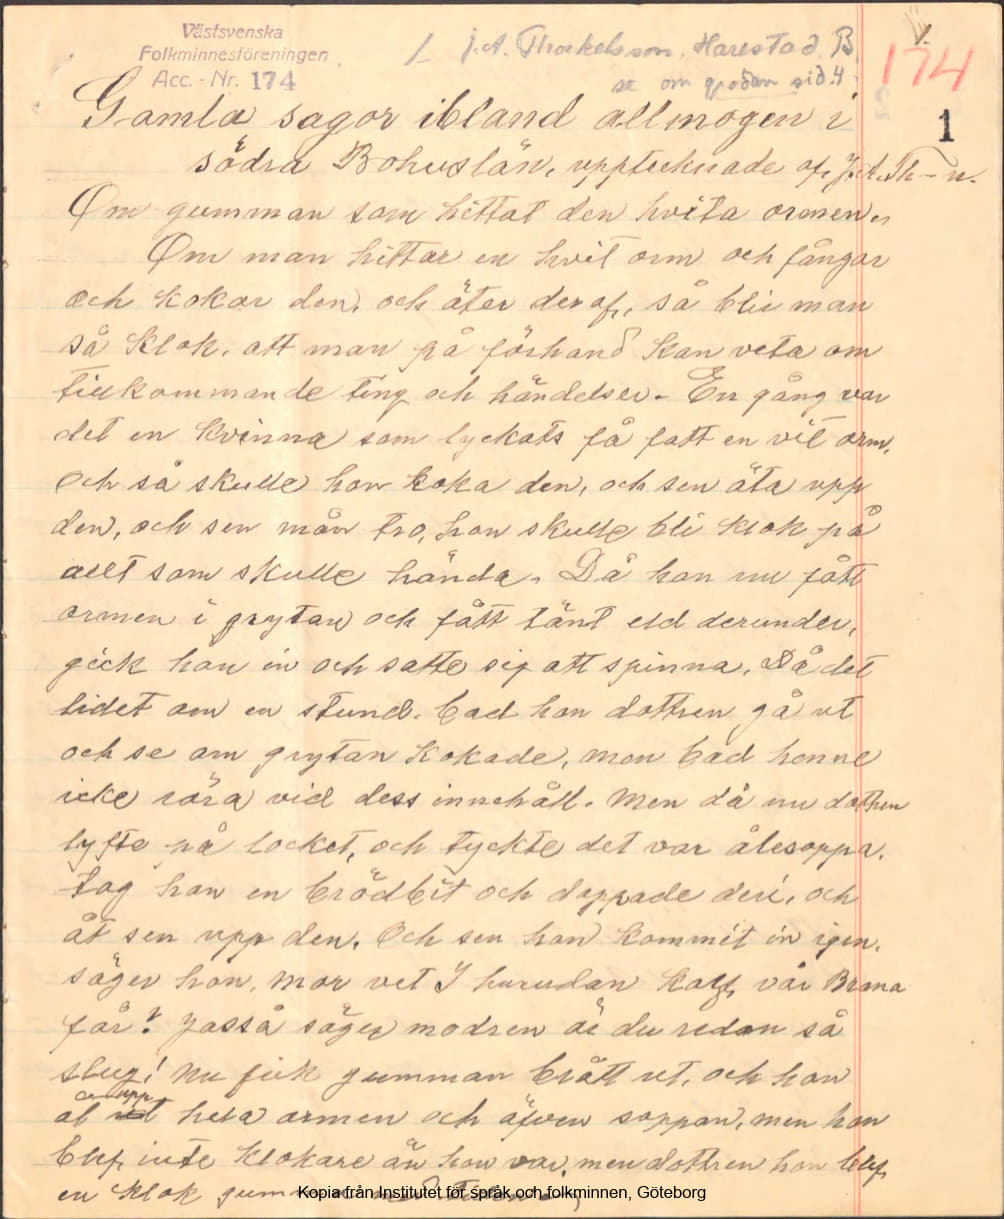 Västsvenska
Folkminnesföreningen
Acc. - Nr. 174
J.A. Thorkelsson. Harestad. B.
se om grodan sid. 4
174
1
Gamla sagor ibland allmogen i
södra Bohuslän, upptecknade af, J.A. Th-n.
Om gumman som hittat den hvita ormen.
Om man hittar en hvit orm och fångar
och kokar den, och äter deraf, så blir man
så klok, att man på förhand kan veta om
tillkommande ting och händelser. En gång var
det en kvinna som lyckats få fatt en vit orm,
och så skulle hon koka den, och sen äta upp
den, och sen mån tro, hon skulle bli klok på
allt som skulle hända. Då hon nu fått
ormen i grytan och fått tänt eld derunder,
gick hon in och satte sig att spinna. Då det
lidet om en stund, bad hon dottren gå ut
och se om grytan kokade, men bad henne
icke röra vid dess innehåll. Men då nu dottren
lyfte på locket, och tyckte det var ålesoppa,
tog hon en brödbit och doppade deri, och
åt sen upp den. Och sen hon kommit in igen,
säger hon, mor vet I hurudan kalf, vår Brona
får? Jasså säger modren är du redan så
slug! Nu fick gumman brått ut, och hon
åt upp hela ormen och äfven soppan, men hon
blef inte klokare än hon var, men dottren hon blef
en klok gumma med tiden.
Kopia från Institutet för språk och folkminnen, Göteborg